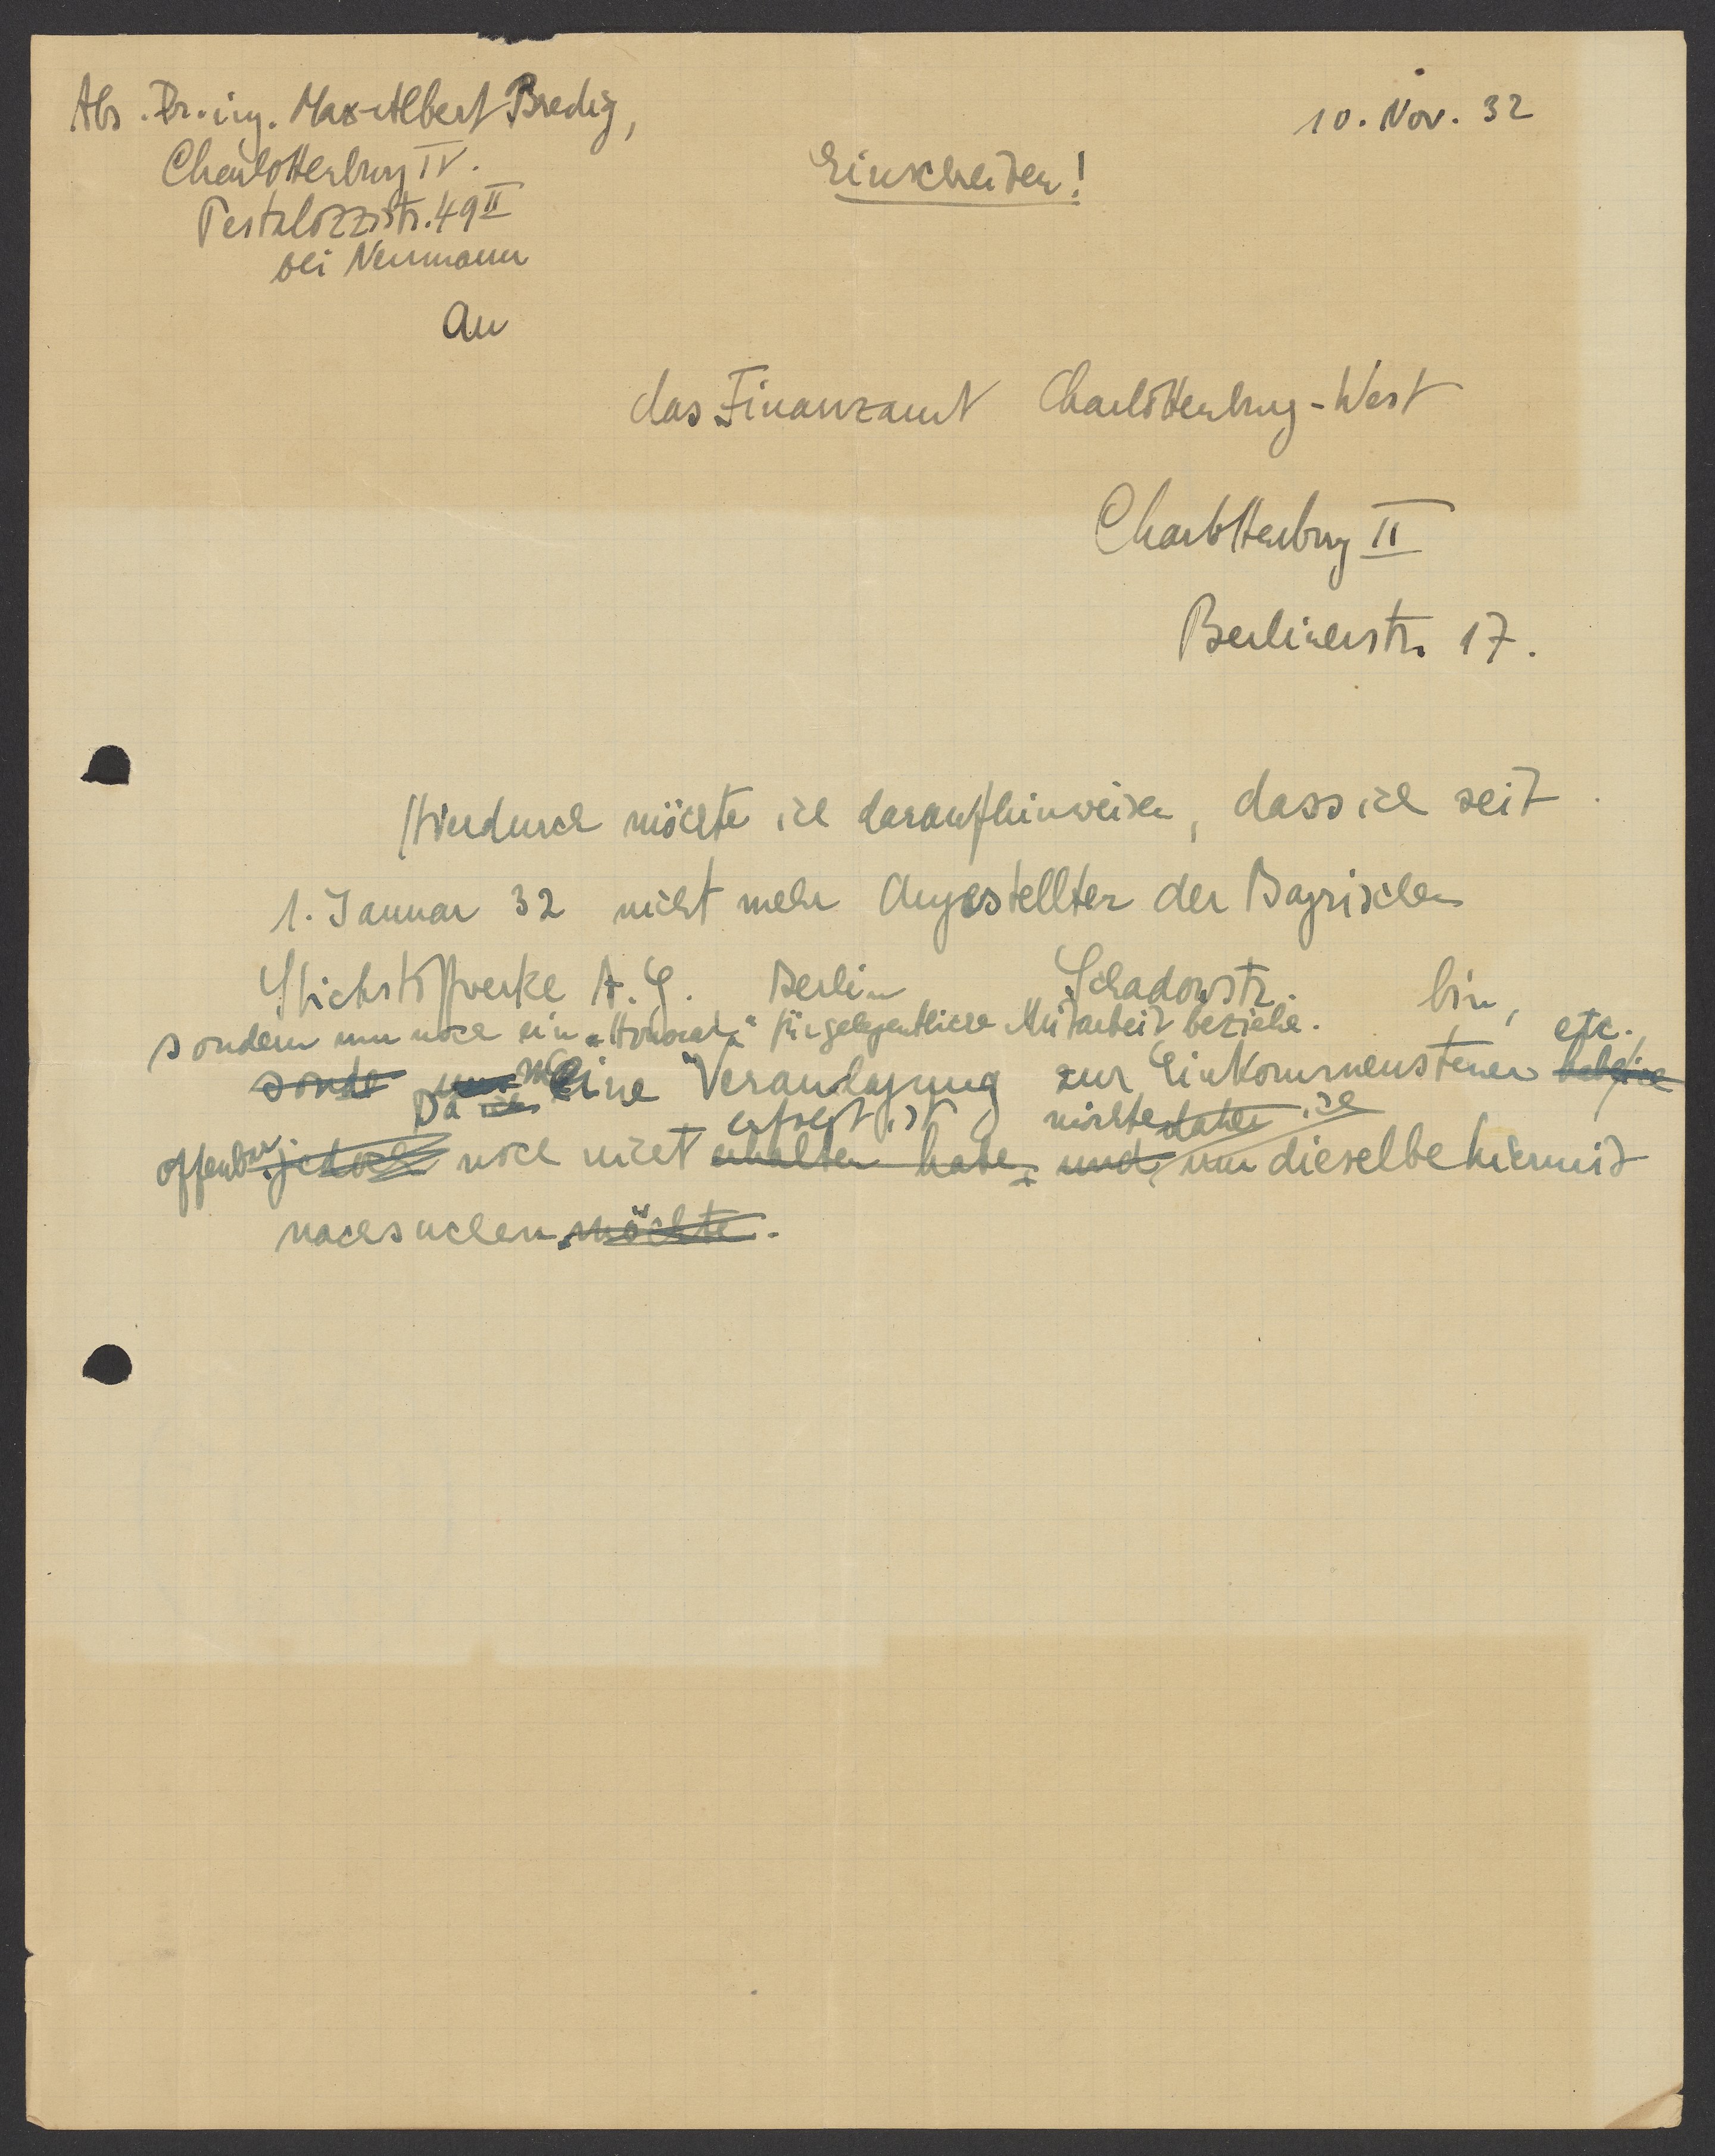 Abs. Dr.-ing. Max-Albert Bredig,
10. Nov. 32
Charlottenburg IV.
Einschreiben!
Pestalozzistr. 49 II
bei Neumann
An
das Finanzamt Charlottenburg-West
Charlottenburg II
Berlinerstr. 17.
Hierdurch möchte ich daraufhinweisen, dass ich seit
1. Januar 32 nicht mehr Angestellter der Bayrischen
Stickstoffwerke A.G. Berlin Schadowstr. bin,
sondern nur noch ein "Honorar" für gelegentliche Mitarbeit beziehe. etc.,
sonde nur meine Veranlagung zur Einkommensteuer habe ich
Da ich erfolgt ist möchte daher ich
offenbar jedoch noch nicht erhalten habe, und um dieselbe hiermit
nachsuchen möchte.